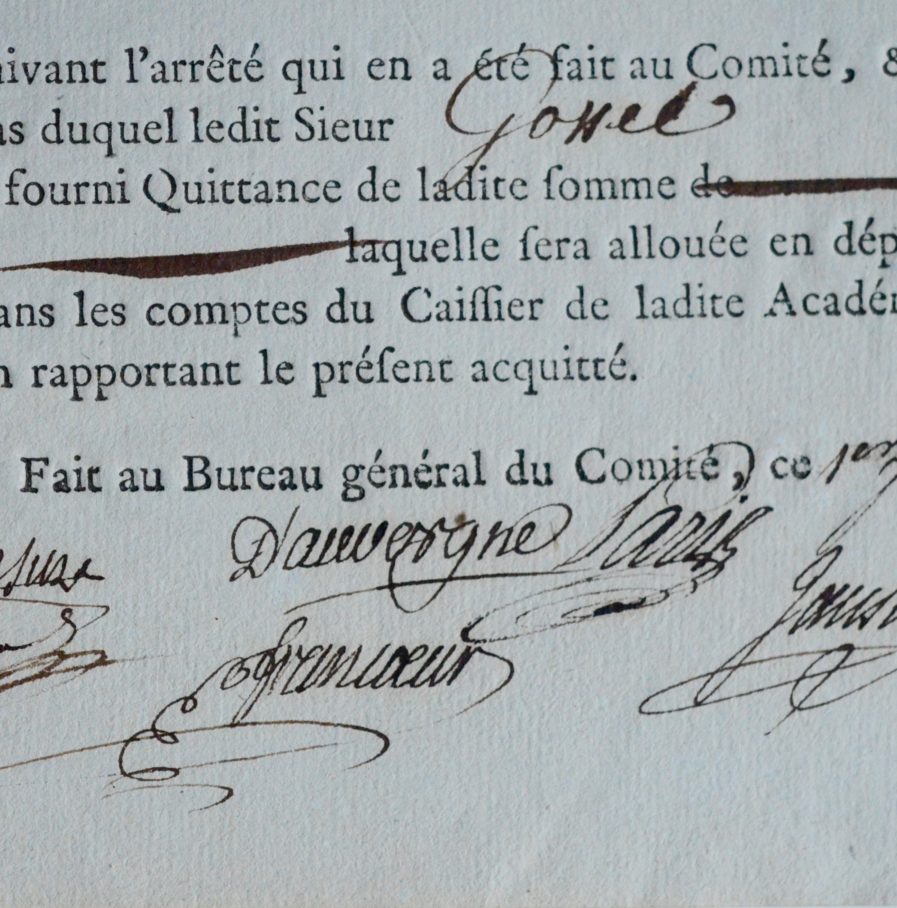 uivant l'arrêté qui en a été fait au Comité, &
as duquel ledit Sieur Gossec
fourni Quittance de ladite ſomme de
laquelle ſera allouée en dép
ans les comptes du Caiſſier de ladite Acadé
n rapportant le préſent acquitté.
Fait au Bureau général du Comité, ce 1er
D'auvergne
francœur